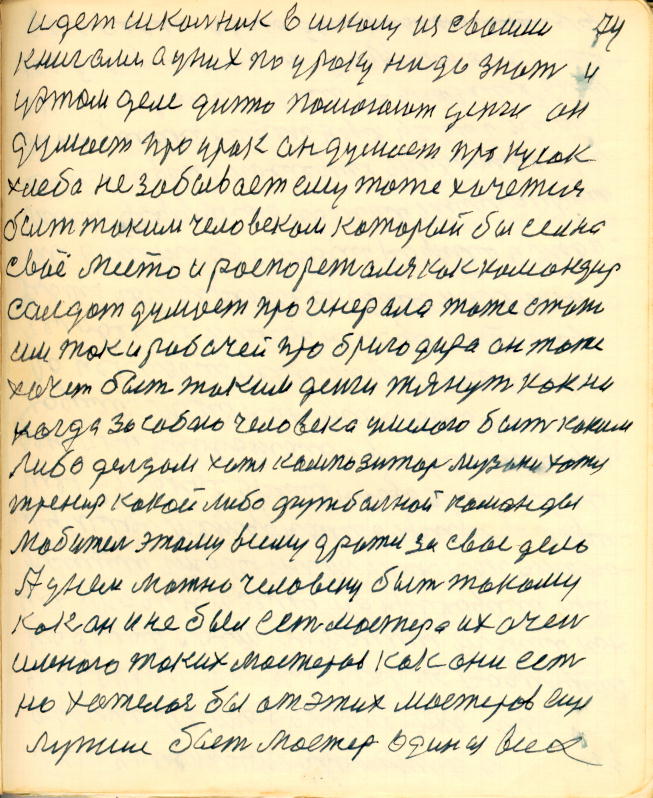 идет школник в школу из своими 74
книгами а у них по уроку надо знат и
у этом деле дито помогают денги он
думает про урок он думает про кусок
хлеба не забывает ему тоже хочется
быт таким человеком который бы сел на
своё место и роспоретался как командир
салдат думает про генерала тоже стат
им так и рабочей про бригадира он тоже
хочет быт таким денги тянут как ни
когда за собою человека умелого быт каким
либо делдом хотя композитор музыки хотя
тренир какой либо футбалной команды
любител этому всему дрожи за свое дело
А у нем можно человеку быт такому
как он и не был ест мостера их очен
много таких мостеров как они ест
но хотелоя бы от этих мостеров еще
лутше быт мостер один из всех